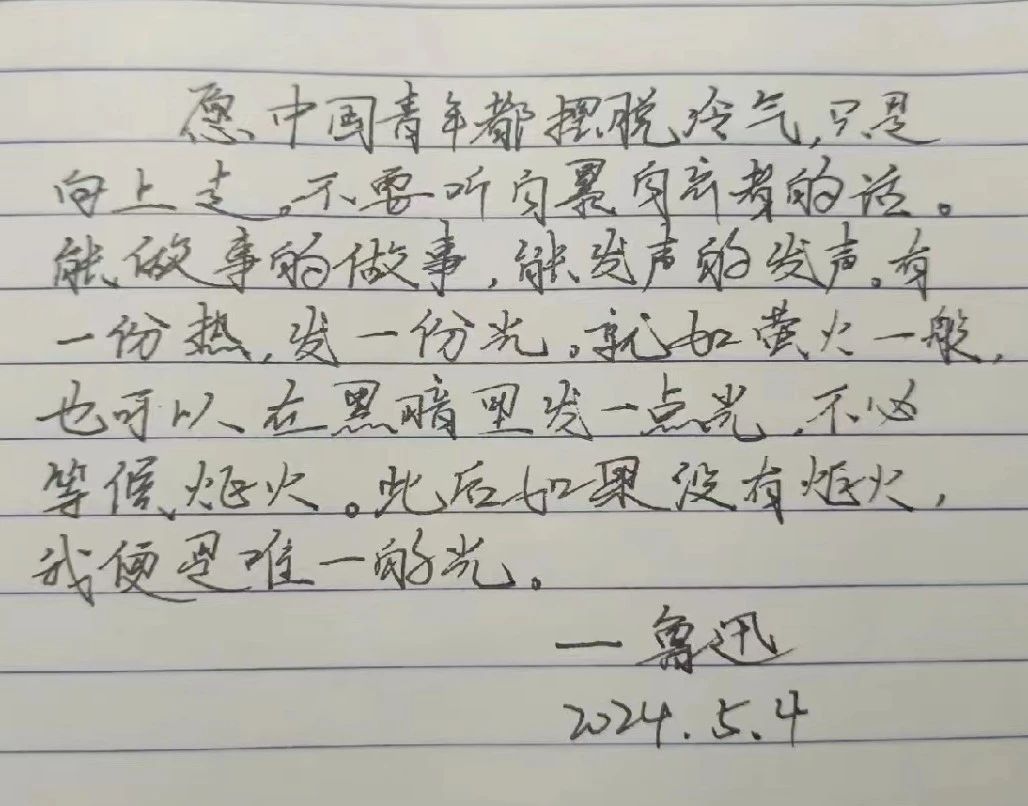 愿中国青年都摆脱冷气,只是
向上走。不要听自暴自弃者的话。
能做事的做事,能发声的发声。有
一份热,发一份光。就如萤火一般,
也可以在黑暗里发一点光,不必
等候炬火。此后如果没有炬火,
我便是唯一的光。
一鲁迅
2024.5.4